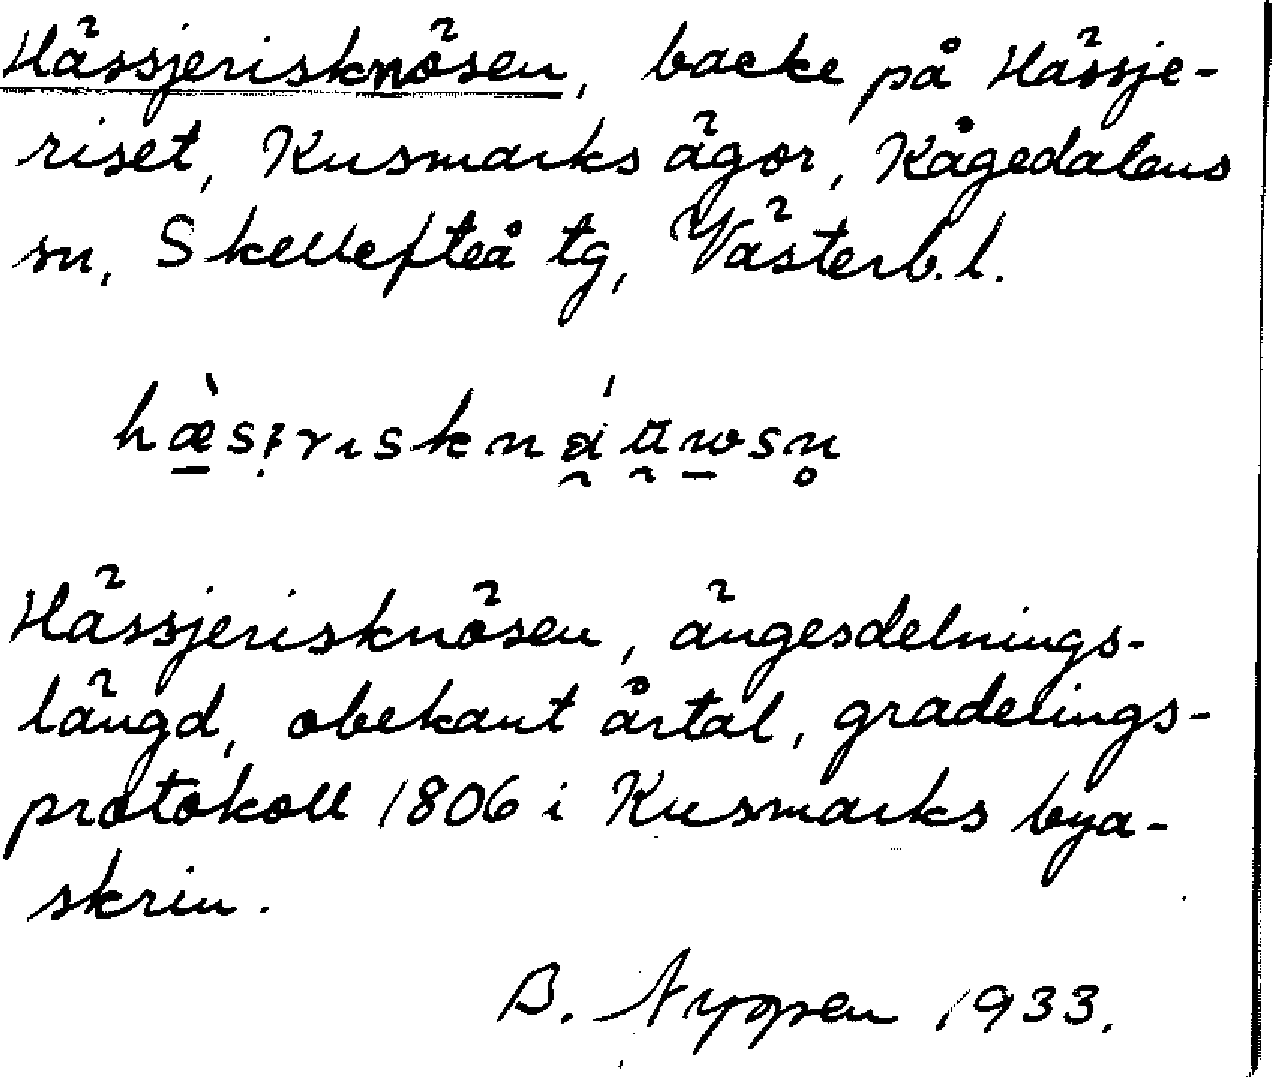 Hässjerisknösen, backe på Hässje-
riset, Kusmarks ägor, Kågedalens
sn, Skellefteå tg, Västerb. l.
Hässjerisknösen, ängesdelnings-
längd, obekant årtal, graderings-
protokoll 1806 i Kusmarks bya-
skrin.
B. Nyppen 1933.